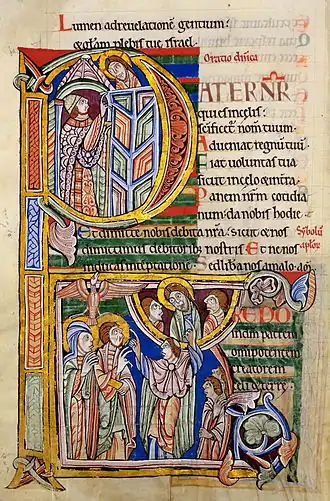 Lumen adreuelationē gentium:
& głam plebis tue israel.
Oratio dñica
PATER NR̄
qui es in celis:
scificet̃ nom̃ tuum.
Adueniat regnũ tuũ.
Fiat uoluntas tua
sicut in celo & in tẽra.
Panem nr̃m cotidia
num da nobis hodie.
Et dimitte nobis debita nr̃a. sicut & nos
dimittimus debitorib; nostris. Et ne nos
inducas in temptatione. Sed libera nos a malo. am̃
Symbolũ
aplor̃
CREDO
in dm̃ patrem
omnipotentem
creatorem
celi & terre.